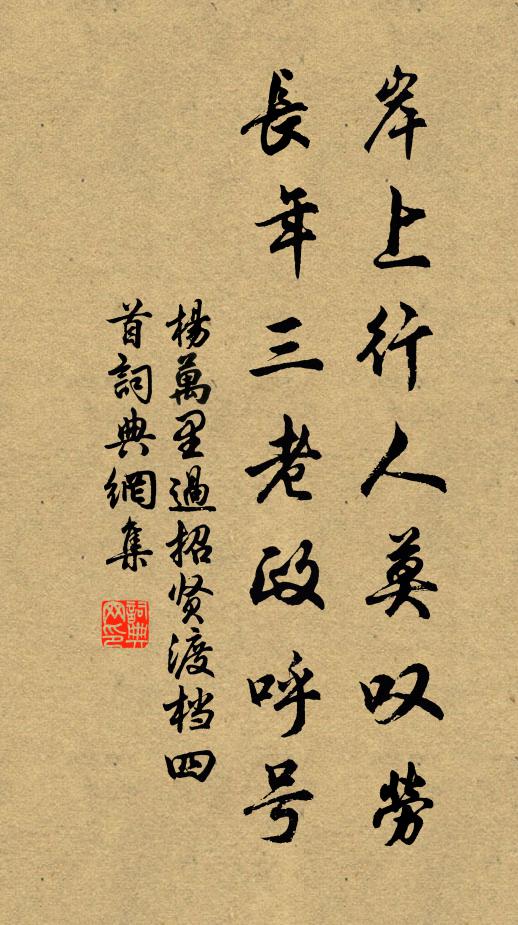 岸上行人莫叹勞
長年三老政呼号
楊萬里過招贤渡档四
首詞典網集
詞典網印